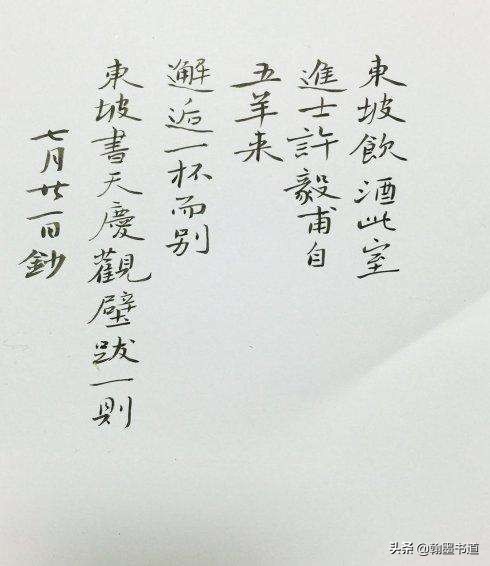 東坡飲酒此室
進士許毅甫自
五羊来
邂逅一杯而别
東坡書天慶觀壁跋一則
七月廿一日鈔
头条 @翰墨书道